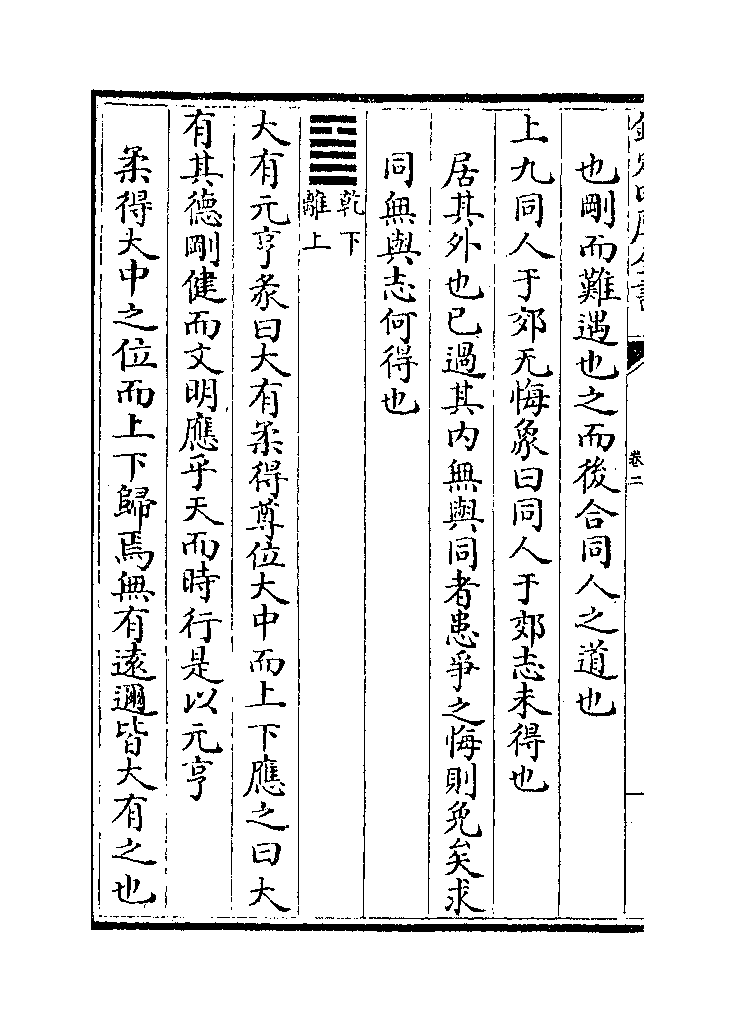 欽定四庫全書
卷二
也剛而難遇也之而後合同人之道也
上九同人于郊无悔象曰同人于郊志未得也
居其外也已過其内無與同者患爭之悔則免矣求
同無與志何得也
乾下
離上
大有元亨彖曰大有柔得尊位大中而上下應之曰大
有其德剛健而文明應乎天而時行是以元亨
柔得大中之位而上下歸焉無有遠邇皆大有之也